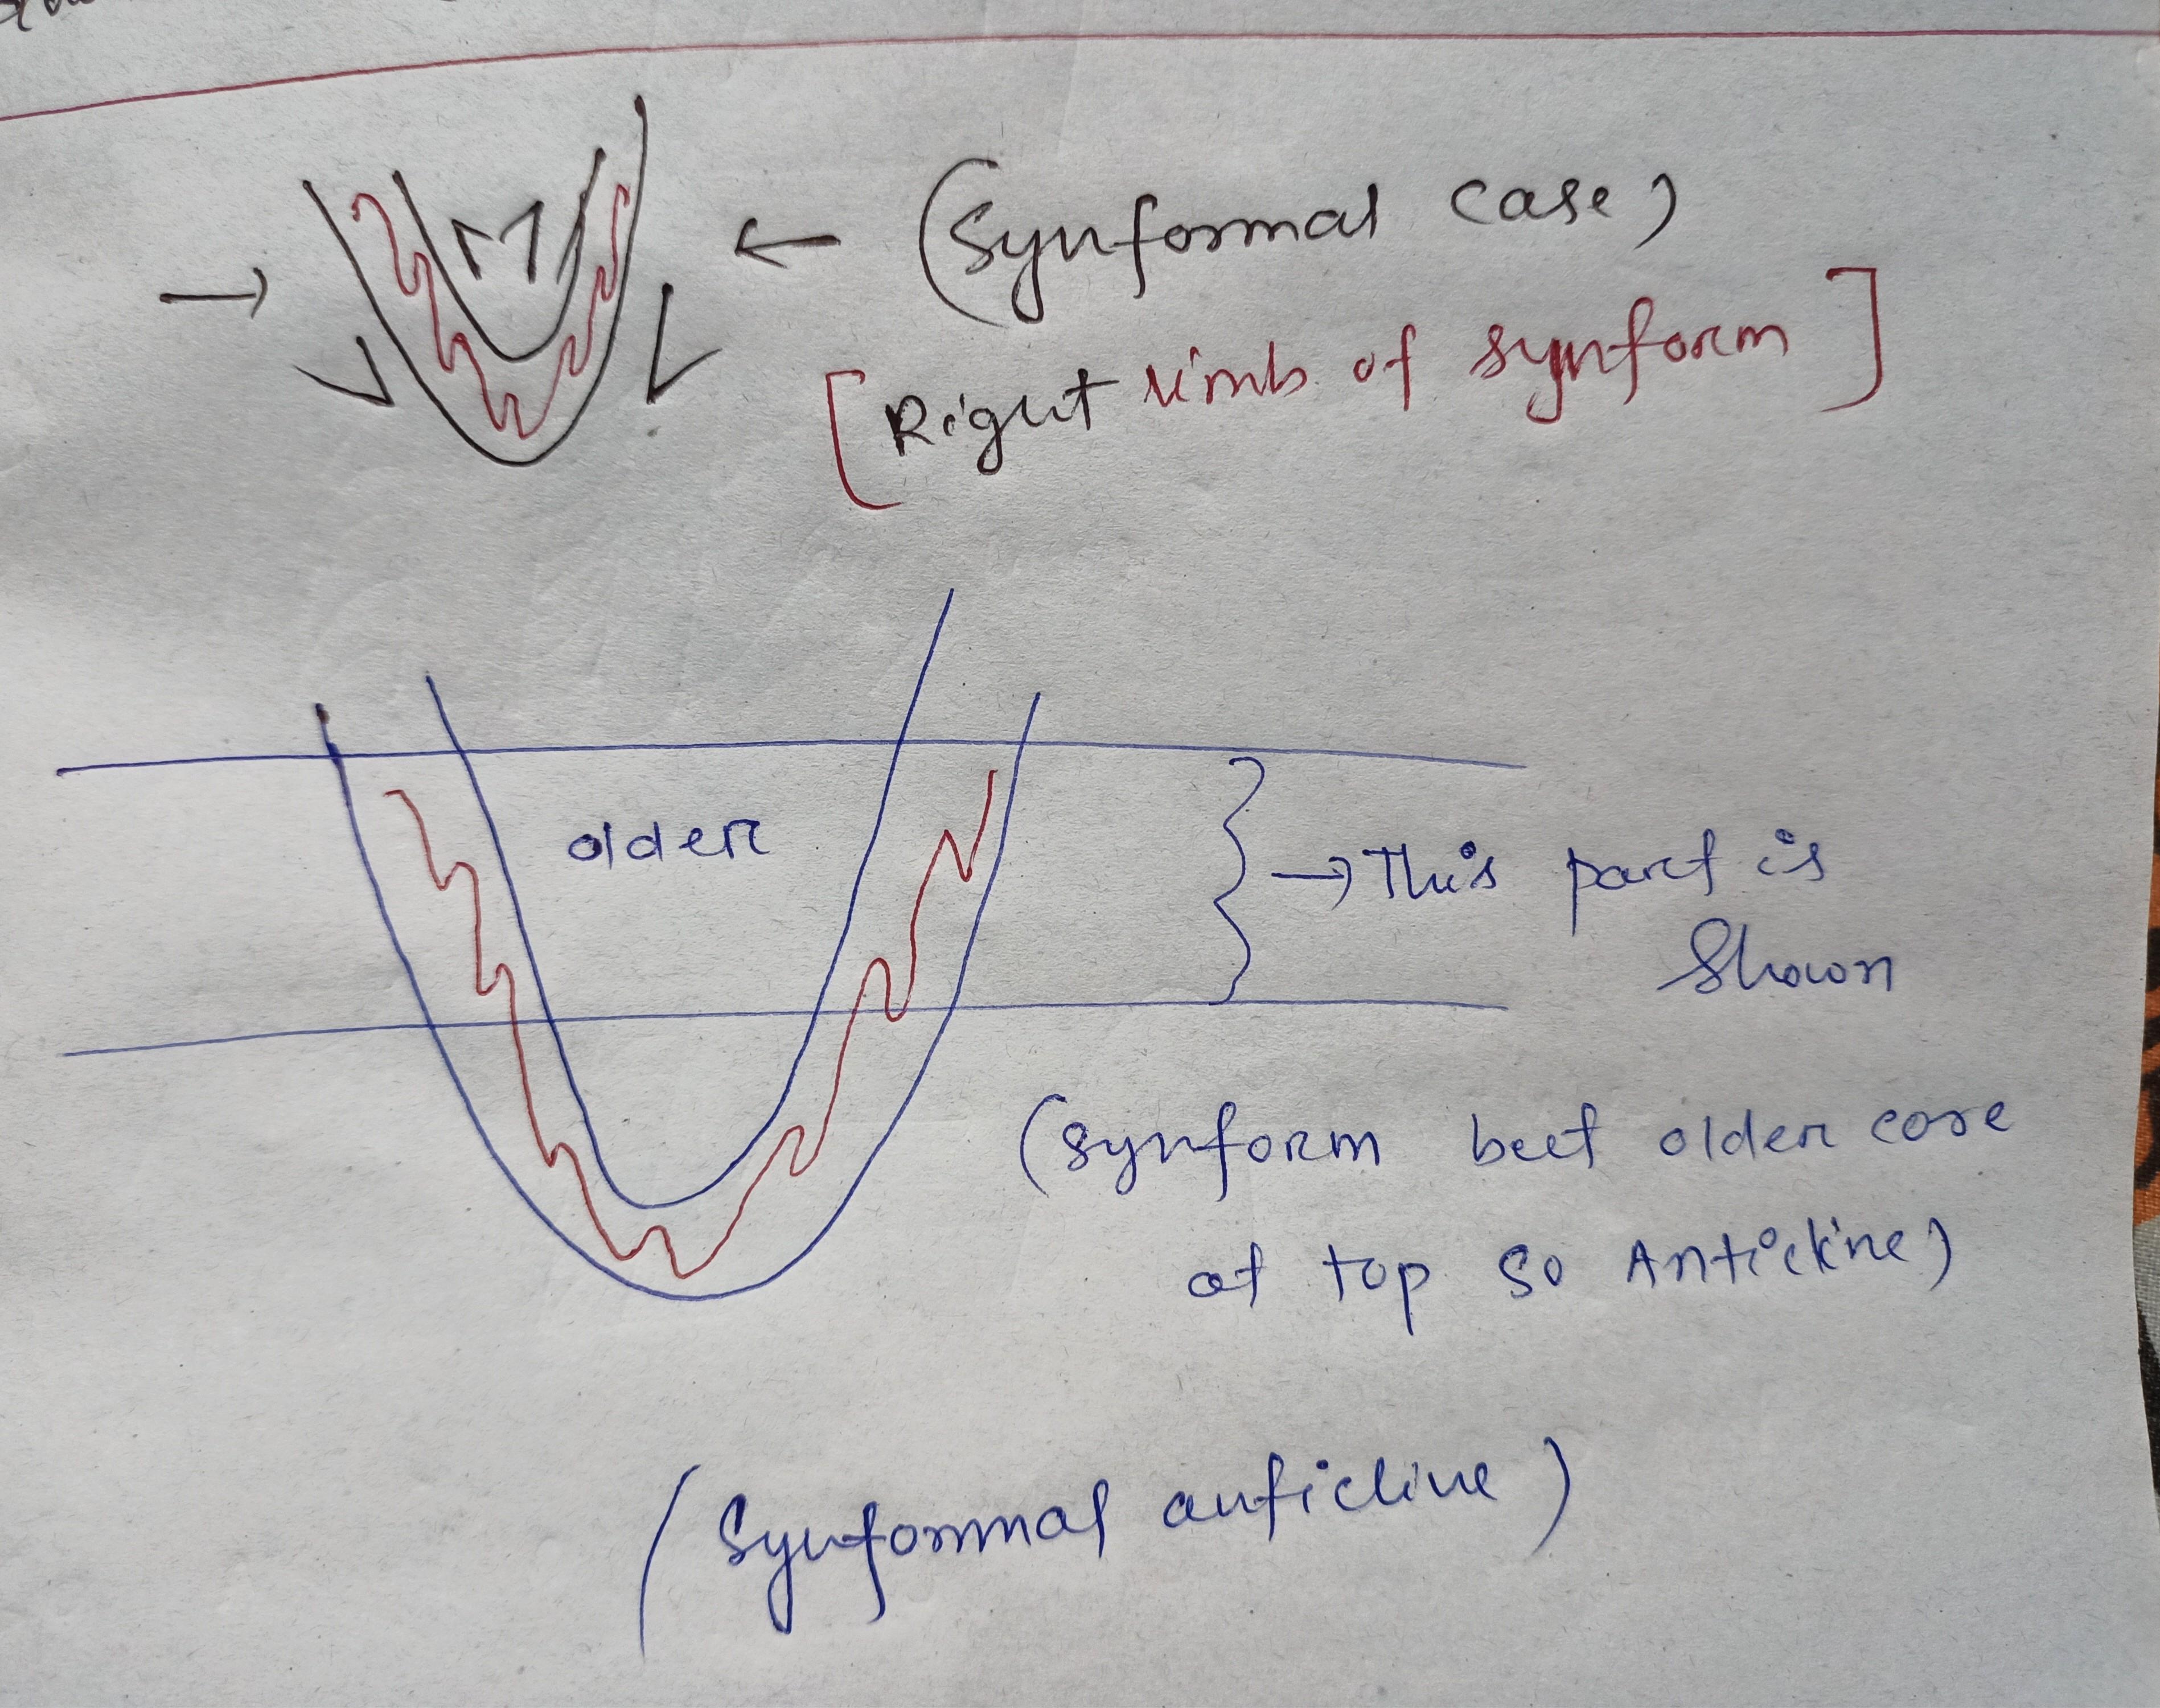 (Synformal case)
[Right limb of synform]
older
→ This part is
Shown
(synform but older core
at top so Anticline)
(Synformal anticline)